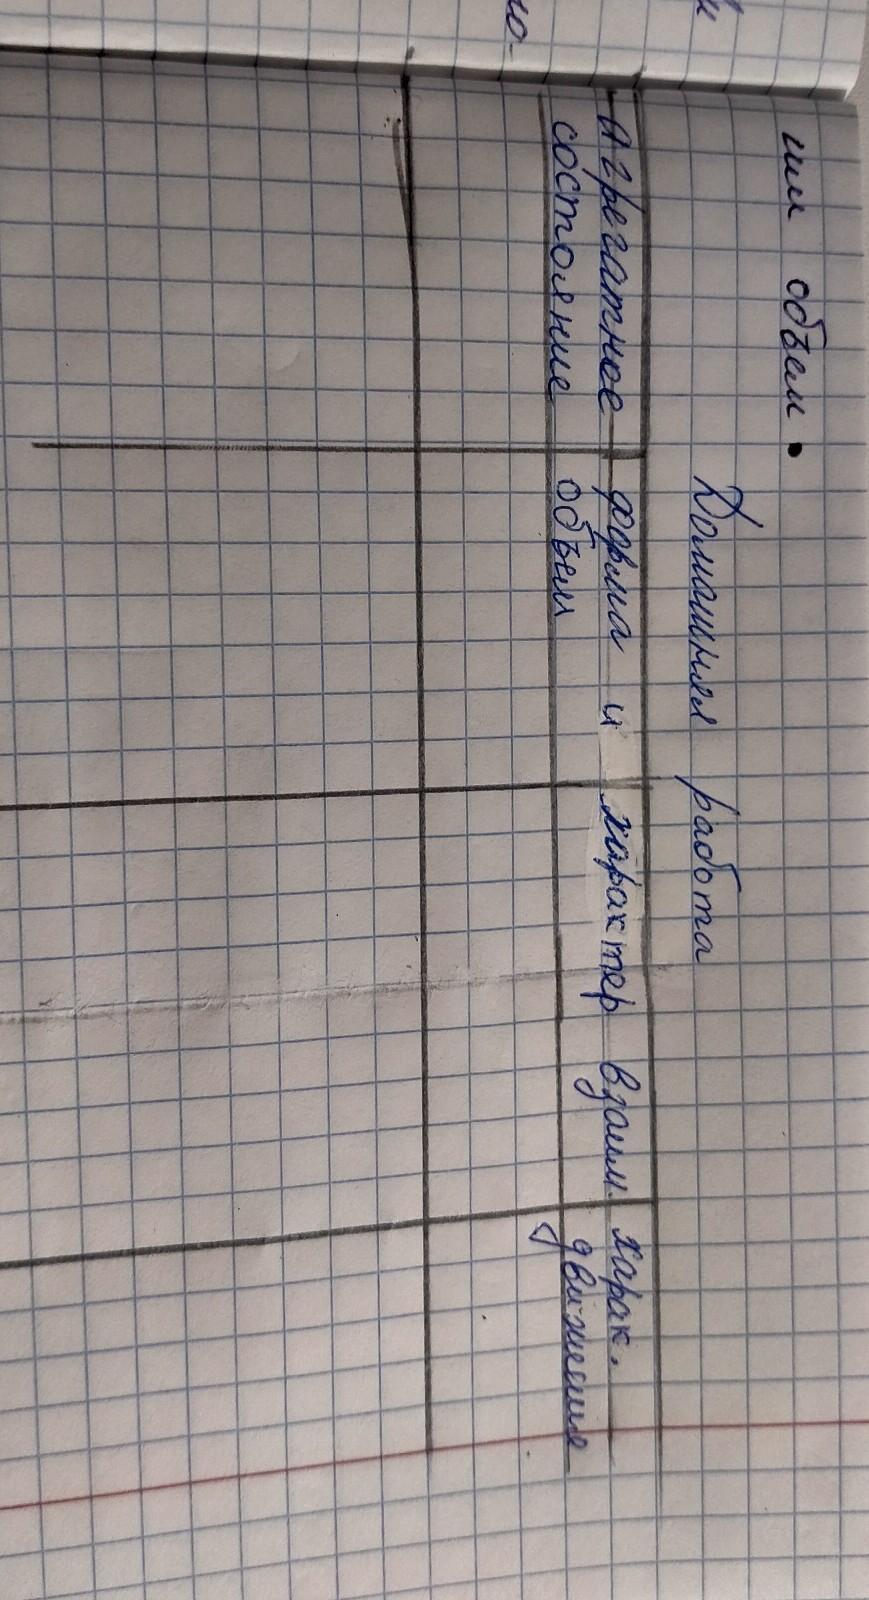 ним объем.
Домашняя работа
Агрегатное форма и характер взаим. харак.
состояние объем движения